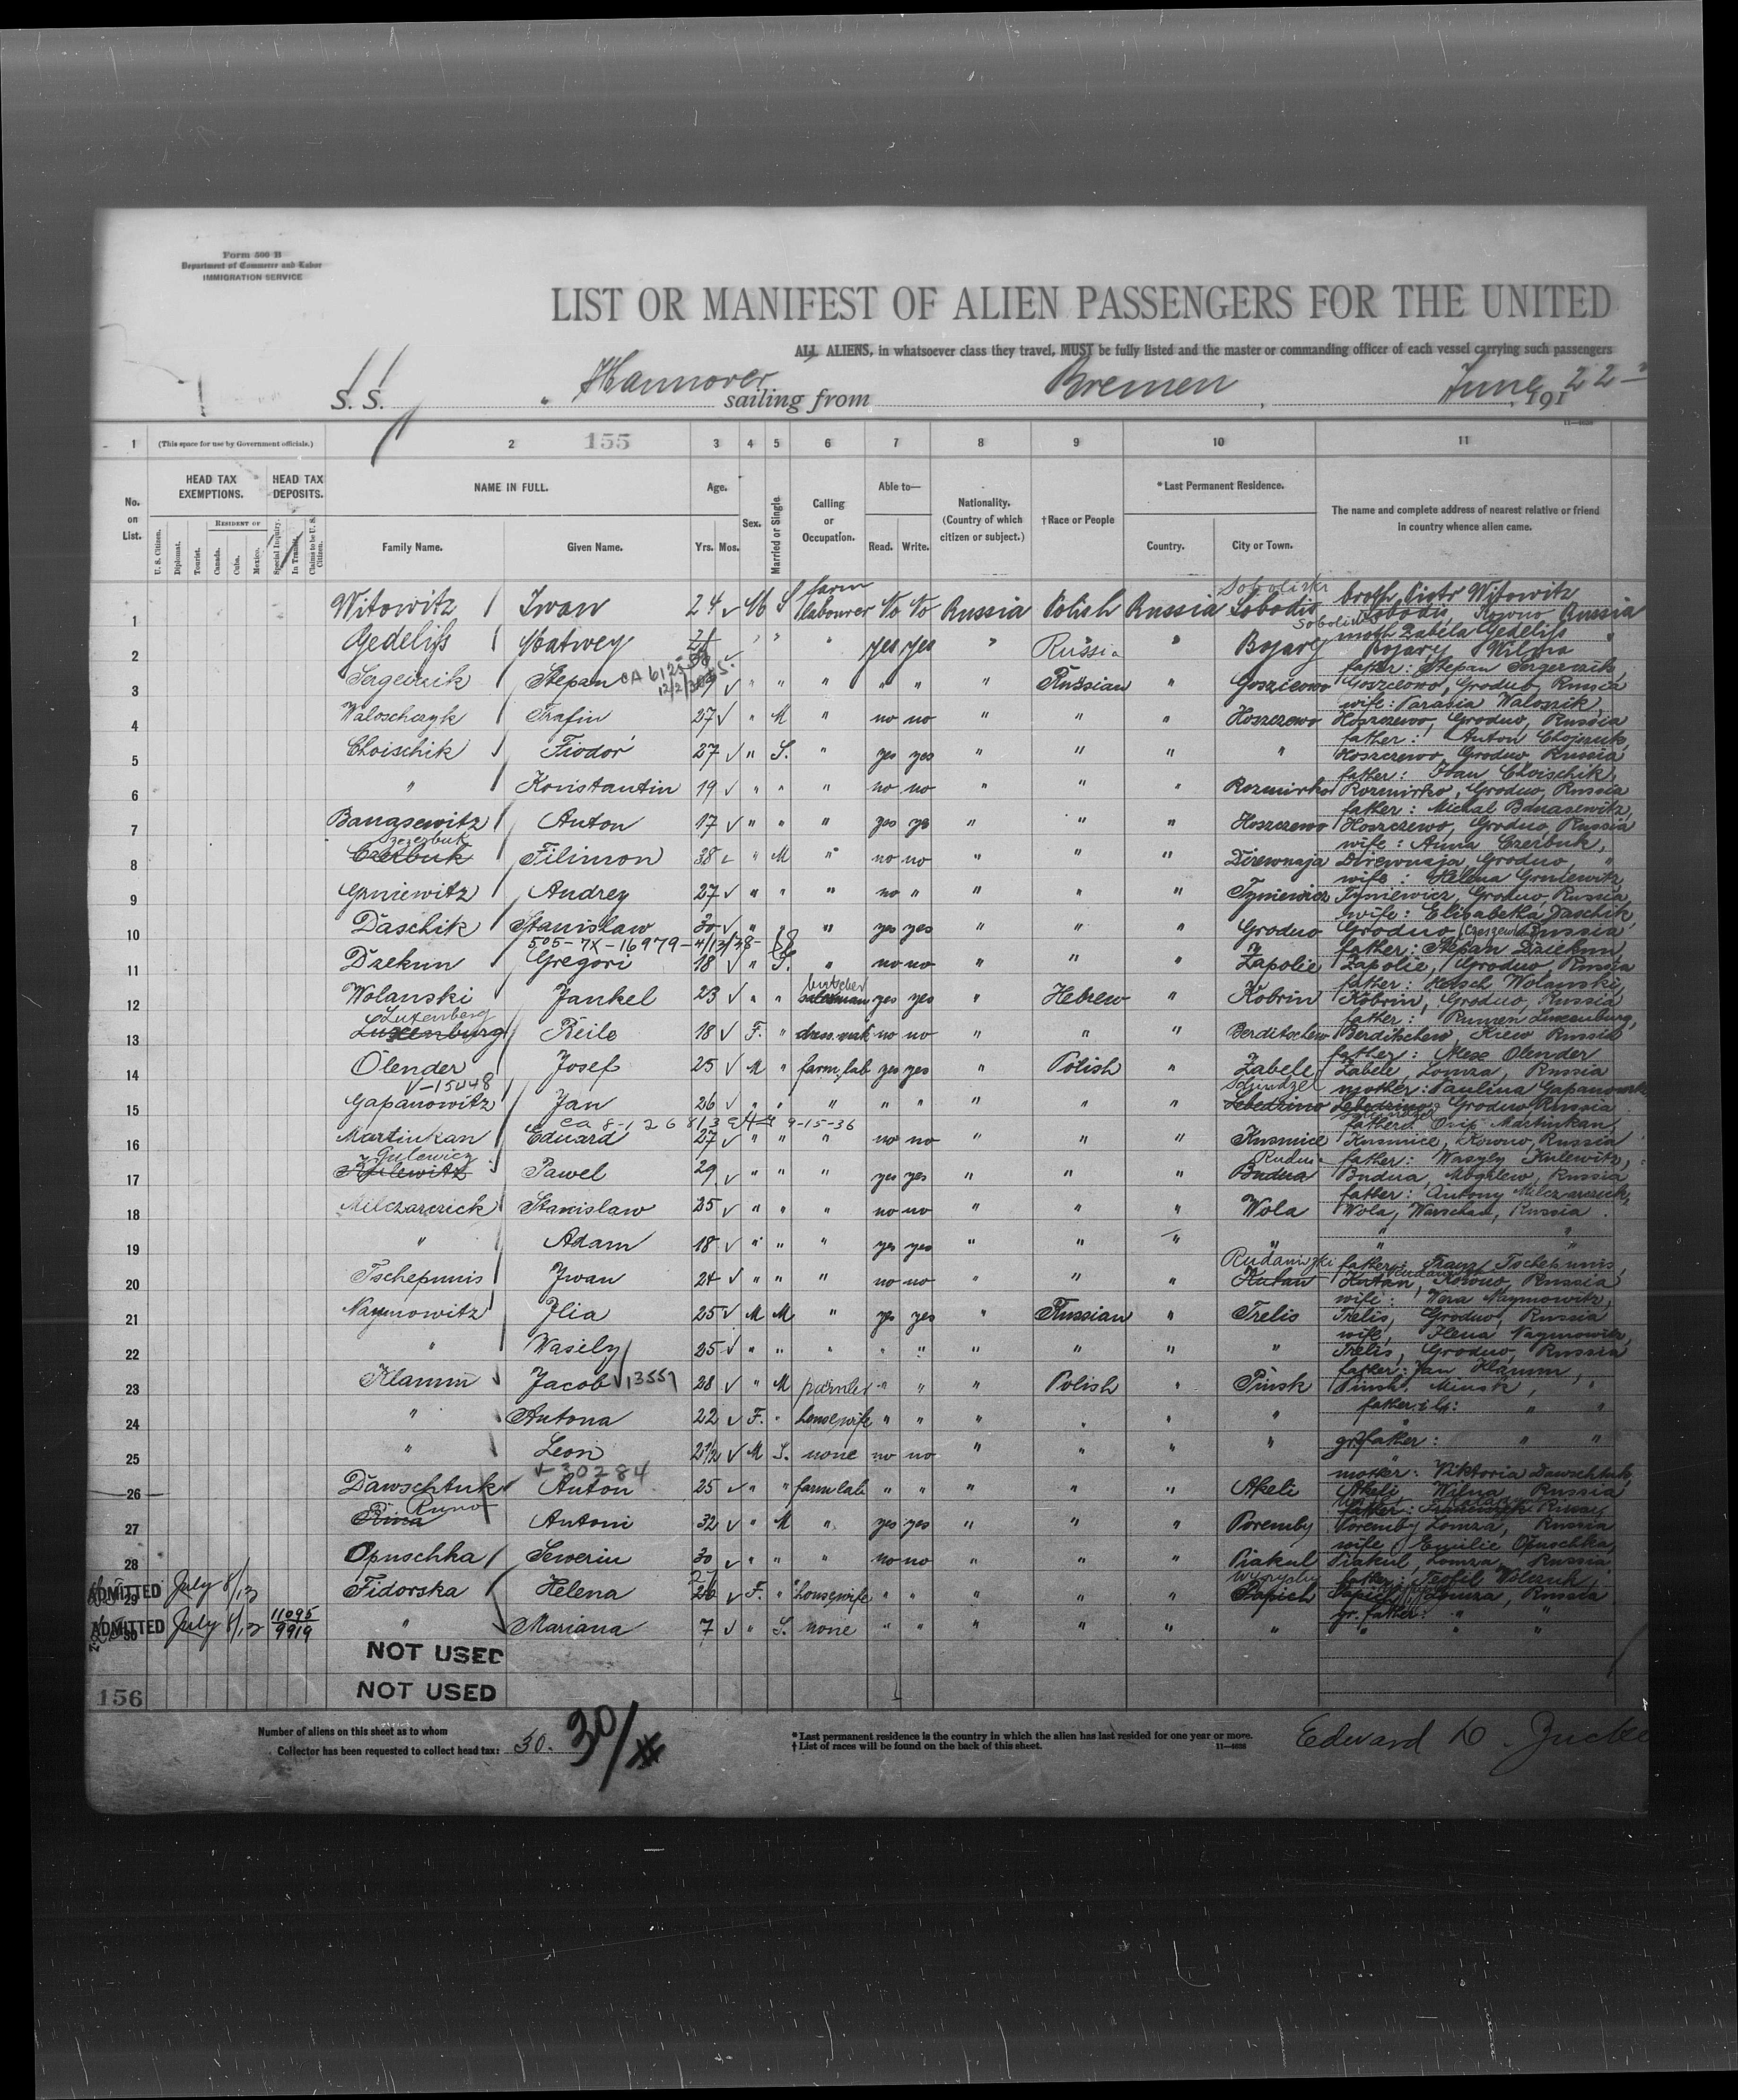 Form 500 B
Department of Commerce and Labor
IMMIGRATION SERVICE
LIST OR MANIFEST OF ALIEN PASSENGERS FOR THE UNITED
ALL ALIENS, in whatsoever class they travel, MUST be fully listed and the master or commanding officer of each vessel carrying such passengers
S. S. Hannover sailing from Bremen, June 22, 191
1 (This space for use by Government officials.) 2 155 3 4 5 6 7 8 9 10 11
No. on List.
HEAD TAX EXEMPTIONS.
HEAD TAX DEPOSITS.
NAME IN FULL.
Age.
Sex.
Married or Single.
Calling or Occupation.
Able to—
Nationality. (Country of which citizen or subject.)
†Race or People
*Last Permanent Residence.
The name and complete address of nearest relative or friend in country whence alien came.
U. S. Citizen. Diplomat. Tourist. RESIDENT OF Canada. Cuba. Mexico. Special Inquiry. In Transit. Claims to be U. S. Citizen.
Family Name. Given Name. Yrs. Mos. Read. Write. Country. City or Town.
1 Witowitz Iwan 24 M S farm labourer No No Russia Polish Russia Sobodis broth. Piotr Witowitz
Sobodis, Kowno Russia
2 Gedeliss Matwey 21 " " " yes yes " Russia " Bojary moth Zabela Gedeliss
Bojary Wilna
3 Sergeiuik Stepan " " " " " " Russian " Goszczowo father: Stepan
Goszczowo, Grodno, Russia
4 Waloschczyk Trafin 27 " M " no no " " " Hoszczewo wife: Parasia Waloszik,
Hoszczewo, Grodno, Russia
5 Choischik Fiodor 27 " S. " yes yes " " " " father: Anton
Hoszczewo, Grodno Russia
6 " Konstantin 19 " " " no no " " " Rozmirko father: Ivan Choischik,
Rozmirko, Grodno, Russia
7 Banasewitz Anton 17 " " " yes yes " " " Hoszczewo father: Michal Banasewitz,
Hoszczewo, Grodno, Russia
8 Czerbuk Filimon 38 " M " no no " " " Direwnaja wife: Anna Czerbuk,
Direwnaja, Grodno, "
9 Gruiewitz Andrey 27 " " " no " " " " Tyniewicz wife: Helena
Tyniewicz, Grodno, Russia
10 Daschik Stanislaw 30 " " " yes yes " " " Grodno wife: Elisabetha Daschik,
Grodno, Russia
505-7X-16979-4/13/38-
11 Dzekun Gregori 18 " S. " no no " " " Zapolie father: Stepan Dziekun
Zapolie, Grodno, Russia
12 Wolanski Jankel 23 " " butcher yes yes " Hebrew " Kobrin father: Hersch Wolanski,
Kobrin, Grodno, Russia
Luxenberg
13 Luxenburg Reile 18 F. " no no " " " Berditschew father: Luxenburg,
Berditschew, Kiew Russia
14 Olender Josef 25 M " farm lab yes yes " Polish " Zabele father: Alex Olender
Zabele, Lomza, Russia
V-15048
15 Gapanowitz Jan 26 " " " " " " " " Lebedzino mother: Paulina Gapanowitz
Grodno Russia
16 Martinkan Eduard 27 " " " no no " " " Kusmice father: Osip Martinkan,
Kusmice, Kowno, Russia
Gulewicz
17 Pawel 29 " " " yes yes " " " Budua father: Wasyly Kulewitz,
Budua, Mogilew, Russia
18 Milczarczick Stanislaw 25 " " " no no " " " Wola father: Antony Milczarczick,
Wola, Warschau, Russia
19 " Adam 18 " " " yes yes " " " " " "
20 Tschepunis Iwan 24 " " " no no " " " Kutan father: Franz Tschepunis,
Kutan, Kowno, Russia
21 Naymowitz Ilia 25 M M " yes yes " Russian " Trelis wife: Wera Naymowitz,
Trelis, Grodno, Russia
22 " Wasily 25 " " " " " " " " " wife, Elena Naymowitz,
Trelis, Grodno, Russia
23 Klamm Jacob 28 " M " " " Polish " Pinsk father: Jan Klamm,
Pinsk, Minsk, "
24 " Antona 22 F. " housewife " " " " " " father i. l.: " "
25 " Leon 2 1/2 M S. none no no " " " " gr. father: " "
V-30284
26 Dawschtuk Anton 25 " " farm lab " " " " " Akeli mother: Viktoria Dawschtuk,
Akeli, Wilna, Russia
27 Antoni 32 " M " yes yes " " " Poremby
Poremby Lomza, Russia
28 Opuschka Sewerin 30 " " " no no " " " Piakul wife: Emilie Opuschka,
Piakul, Lomza, Russia
ADMITTED July 8/13 29 Fidorska Helena F. " housewife " " " " " Papich father: Teofil
Lomza, Russia
ADMITTED July 8/13 30 11095 9919 " Mariana 7 " S. none " " " " " " gr. father: " "
NOT USED
156 NOT USED
Number of aliens on this sheet as to whom
Collector has been requested to collect head tax: 30. 30/
* Last permanent residence is the country in which the alien has last resided for one year or more.
† List of races will be found on the back of this sheet. 11—4638
Edward